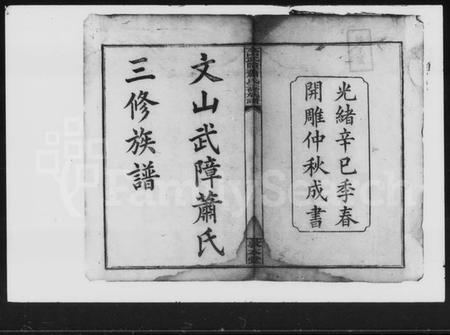 光緒辛巳季春
開雕仲秋成書
文山武障蕭氏
三修族譜
FamilySearch